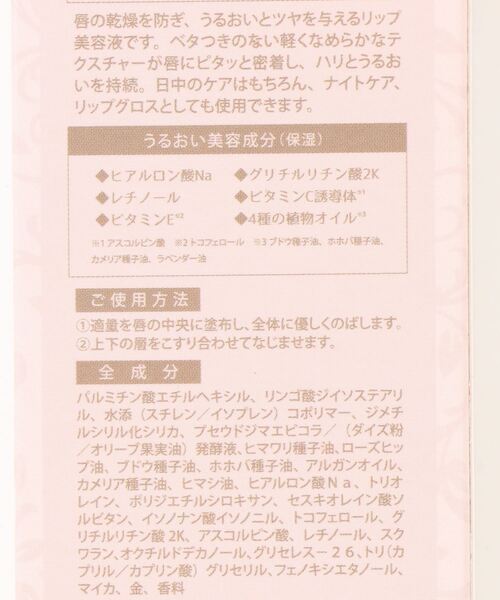 唇の乾燥を防ぎ、うるおいとツヤを与えるリップ
美容液です。ベタつきのない軽くなめらかなテ
クスチャーが唇にピタッと密着し、ハリとうるお
いを持続。日中のケアはもちろん、ナイトケア、
リップグロスとしても使用できます。
うるおい美容成分（保湿）
◆ヒアルロン酸Na ◆グリチルリチン酸2K
◆レチノール ◆ビタミンC誘導体※1
◆ビタミンE※2 ◆4種の植物オイル※3
※1 アスコルビン酸 ※2 トコフェロール ※3 ブドウ種子油、ホホバ種子油、
カメリア種子油、ラベンダー油
ご使用方法
①適量を唇の中央に塗布し、全体に優しくのばします。
②上下の層をこすり合わせてなじませます。
全成分
パルミチン酸エチルヘキシル、リンゴ酸ジイソステアリ
ル、水添（スチレン／イソプレン）コポリマー、ジメチ
ルシリル化シリカ、プセウドジマエピコラ／（ダイズ粉
／オリーブ果実油）発酵液、ヒマワリ種子油、ローズヒッ
プ油、ブドウ種子油、ホホバ種子油、アルガンオイル、
カメリア種子油、ヒマシ油、ヒアルロン酸Ｎａ、トリオ
レイン、ポリジエチルシロキサン、セスキオレイン酸ソ
ルビタン、イソノナン酸イソノニル、トコフェロール、グ
リチルリチン酸2K、アスコルビン酸、レチノール、スク
ワラン、オクチルドデカノール、グリセレス－２６、トリ（カ
プリル／カプリン酸）グリセリル、フェノキシエタノール、
マイカ、金、香料